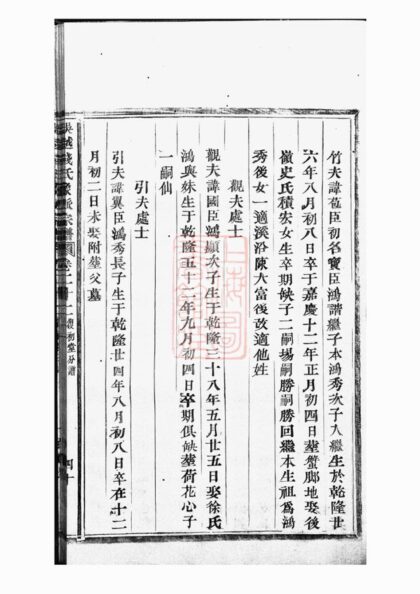 竹夫諱莅臣初名寳臣鴻譜繼子本鴻秀次子入繼生於乾隆廿
六年八月初八日卒于嘉慶十二年正月初四日塟蟹脚地娶後
嶺史氏積安女生卒期缺子二嗣場嗣勝嗣勝回繼本生祖爲鴻
秀後女一適溪沿陳大富後改適他姓
觀夫處士
觀夫諱國臣鴻顯次子生于乾隆三十八年五月廿五日娶徐氏
鴻興妹生于乾隆五十二年九月初四日卒期俱缺塟荷花心子
一嗣仙
引夫處士
引夫諱翼臣鴻秀長子生于乾隆廿四年八月初八日卒在十二
月初二日未娶附塟父墓
吳越錢氏宗譜 卷二十二 初堂分譜 四十